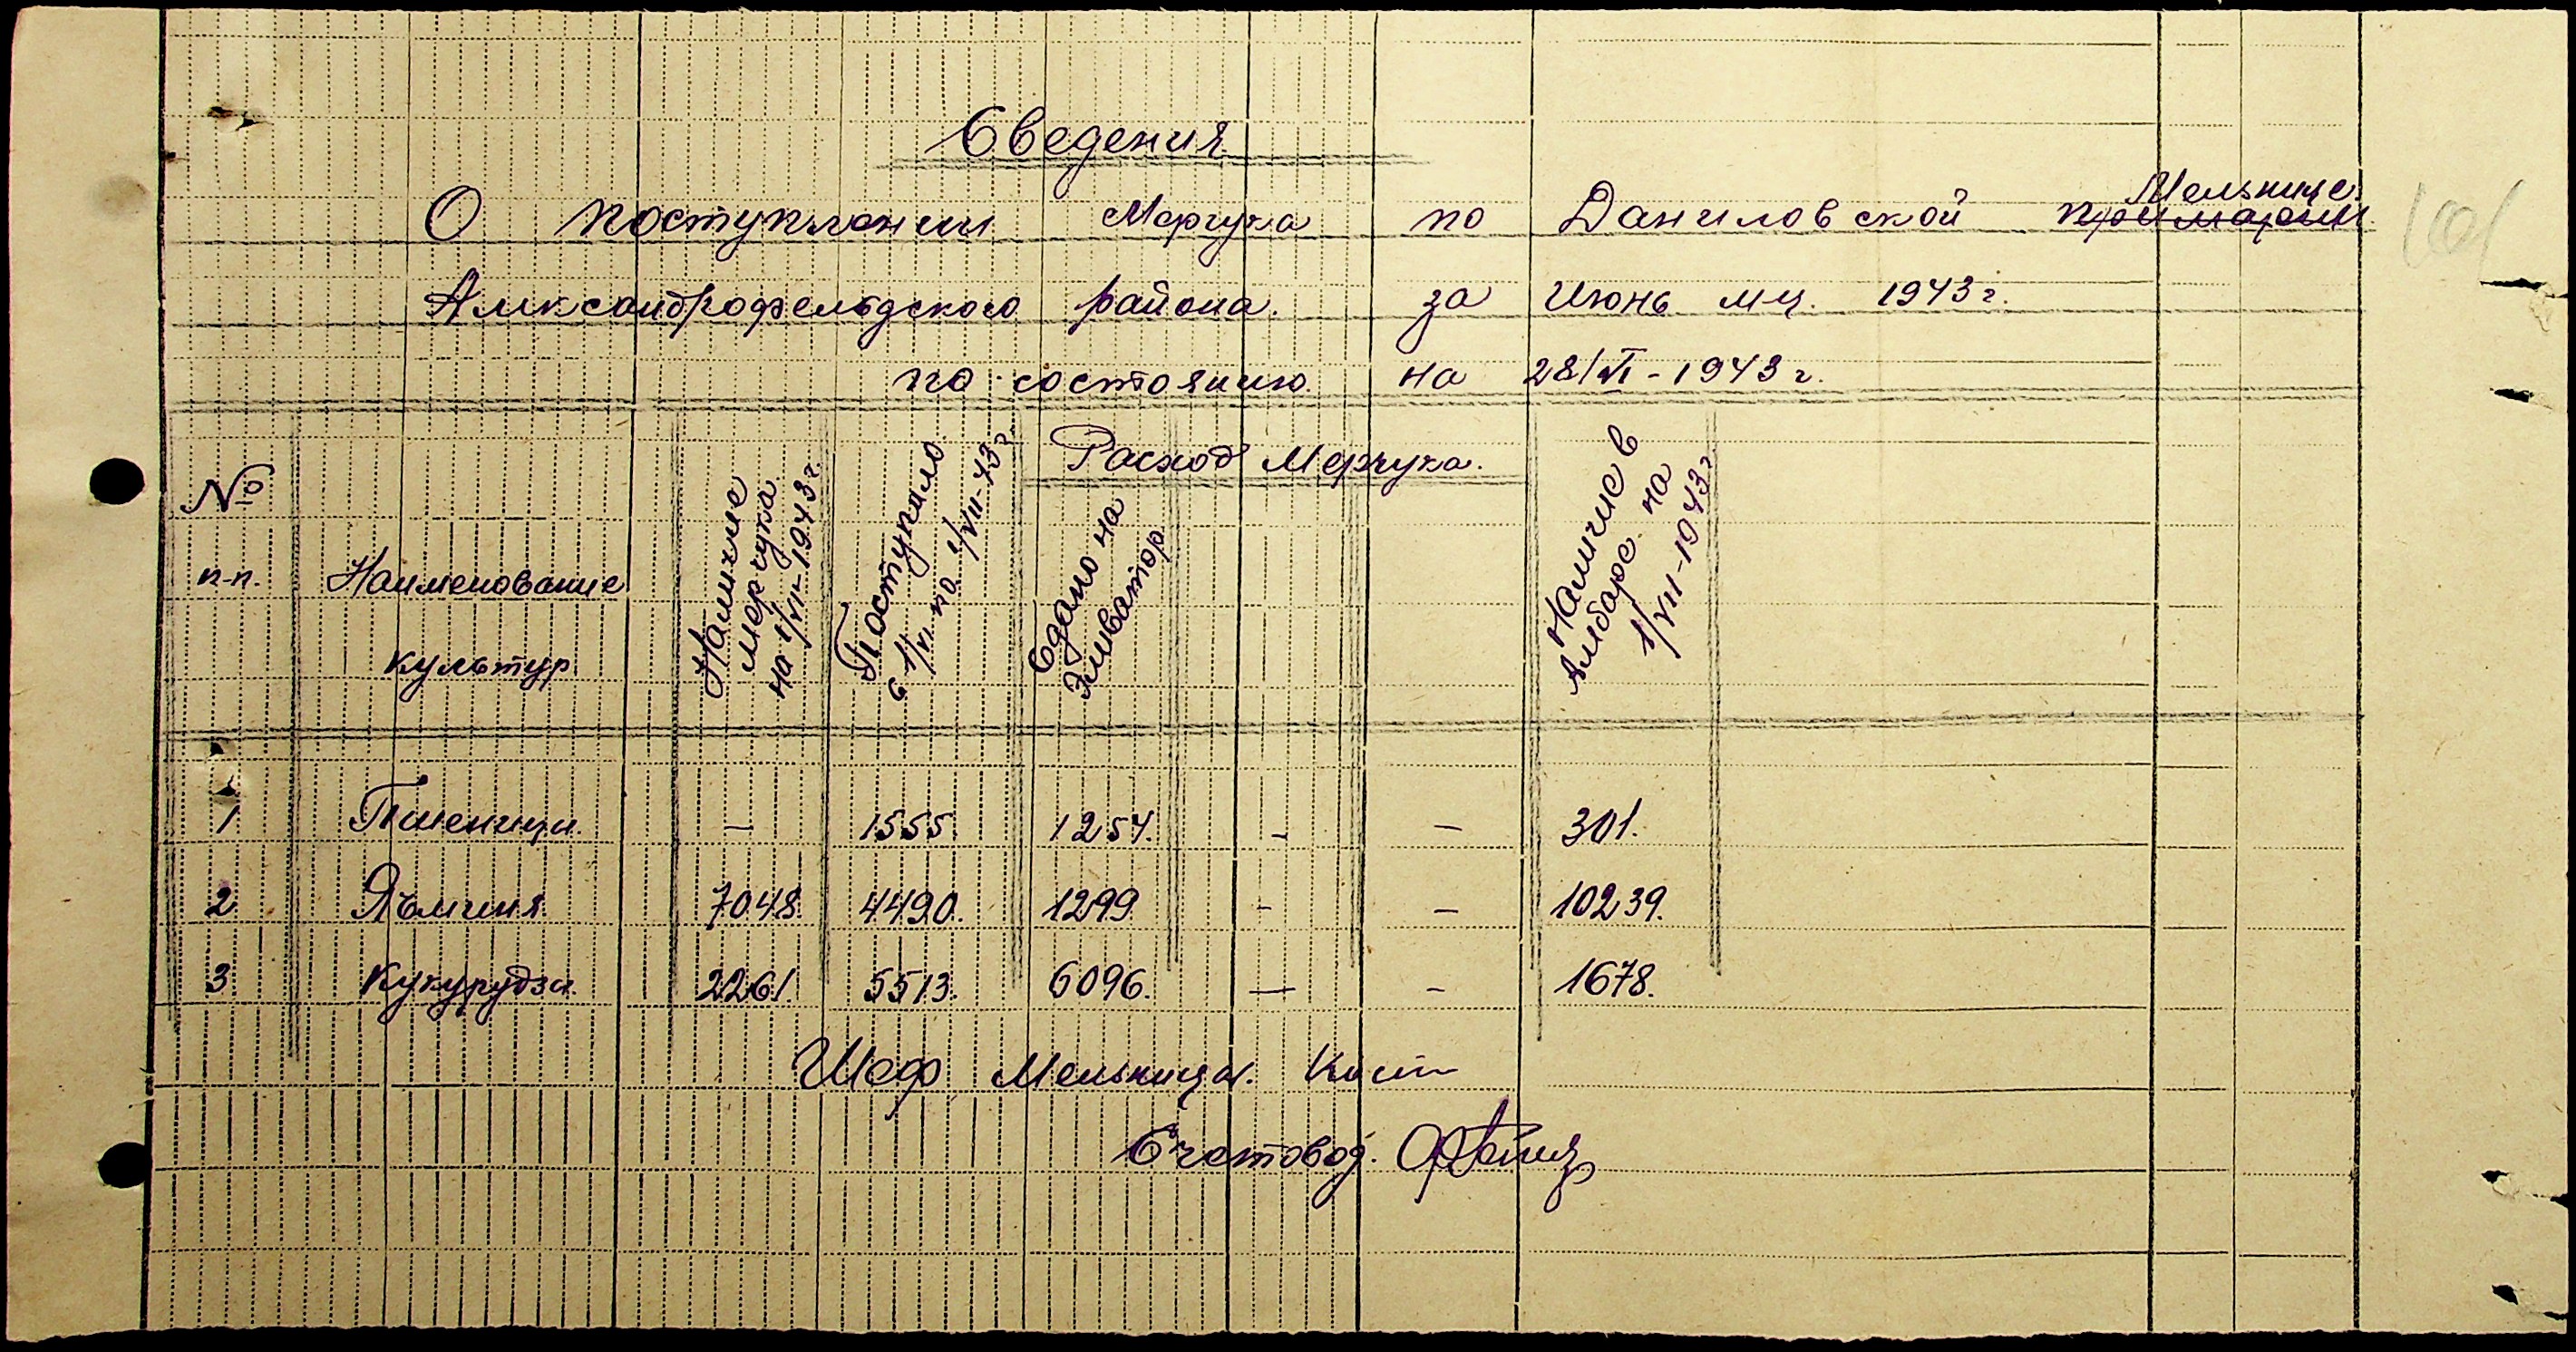 Сведения
О поступлении Мерчука по Даниловской Мельнице
примарии
Александрофельдского района. за Июнь м-ц. 1943 г.
по состоянию на 28/VI-1943 г.
№ п-п. Наименование культур Наличие мерчука на 1/VII-1943 г. Поступило с 1/VI по 1/VII-43 г. Расход Мерчука. Сдано на Элеватор Наличие в Амбаре на 1/VII-1943 г
1 Пшеницы. — 1555. 1254. - — 301.
2 Ячменя 7048. 4490. 1299 - — 10239.
3 Кукурудзы. 2261 5513. 6096. — - 1678.
Шеф Мельницы.
Счетовод.